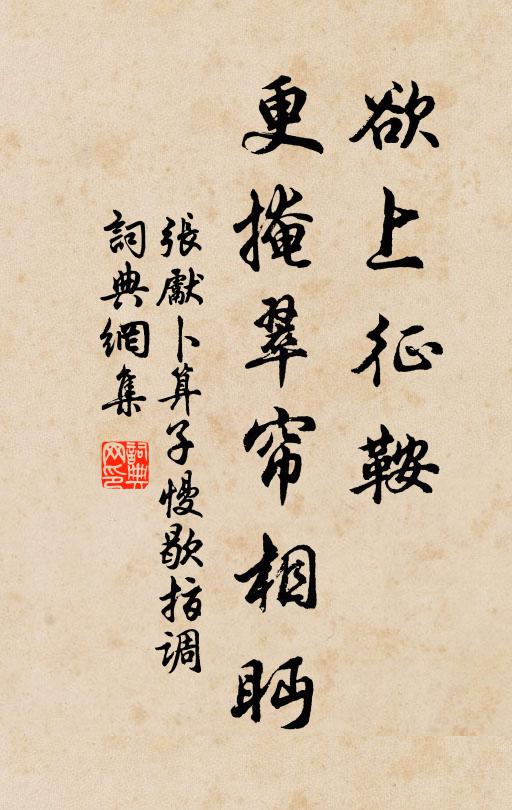 欲上征鞍
更掩翠帘相眄
張獻卜算子慢歇指調
詞典網集
詞典
网印